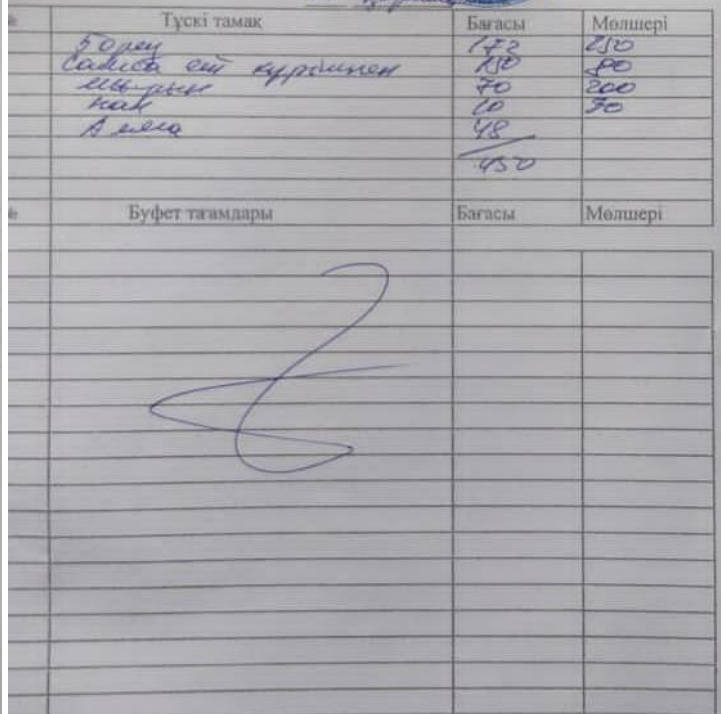 № Түскі тамақ Бағасы Мөлшері
Борщ 172 250
Самса ет күрішпен 150 80
Шырын 70 200
Нан 10 30
Алма 48
450
№ Буфет тағамдары Бағасы Мөлшері